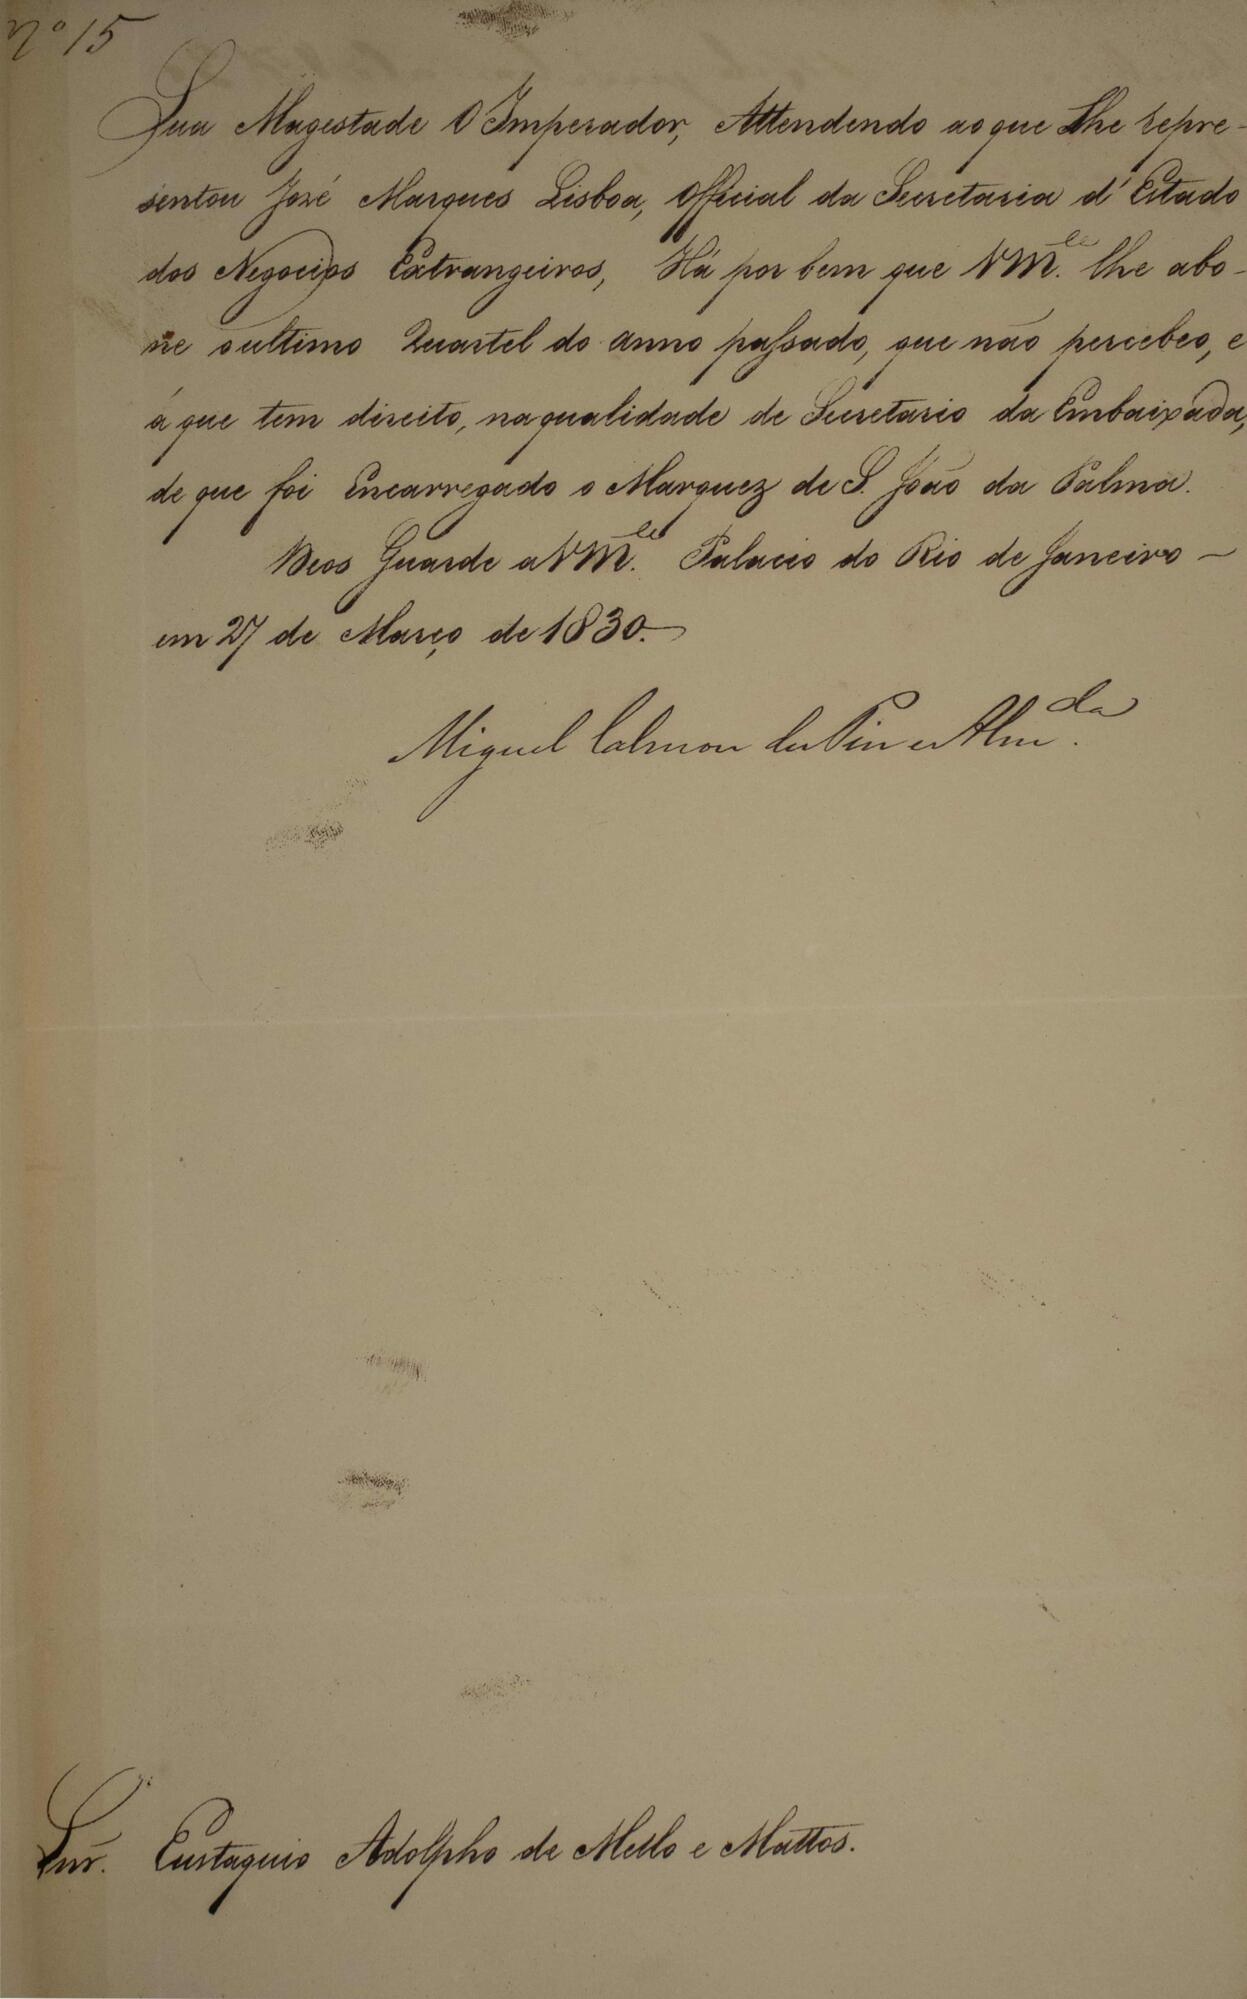 Nº 15
Sua Magestade O Imperador, Attendendo ao que Lhe repre-
sentou José Marques Lisboa, Official da Secretaria d'Estado
dos Negocios Extrangeiros, Há por bem que VM.ce lhe abo-
ne o ultimo Quartel do anno passado, que não percebeo, e
á que tem direito, na qualidade de Secretario da Embaixada,
de que foi Encarregado o Marquez de S. João da Palma.
Deos Guarde a VM.ce Palacio do Rio de Janeiro -
em 27 de Março de 1830.-
Miguel Calmon du Pin e Alm.da
Snr. Eustaquio Adolpho de Mello e Mattos.